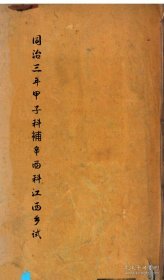 同治三年甲子科補辛酉科江西乡試